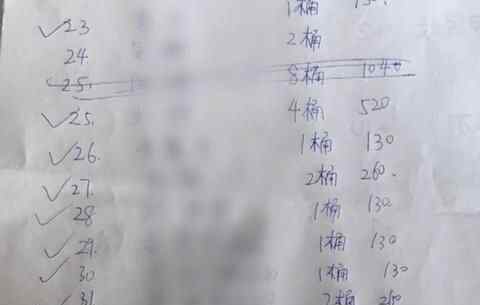 1桶
✓23 2桶
24.
25. 8桶 1040
✓25. 4桶 520
✓26. 1桶 130
✓27. 2桶 260.
✓28 1桶 130
✓29. 1桶 130
✓30 1桶 130
✓31 2桶 260